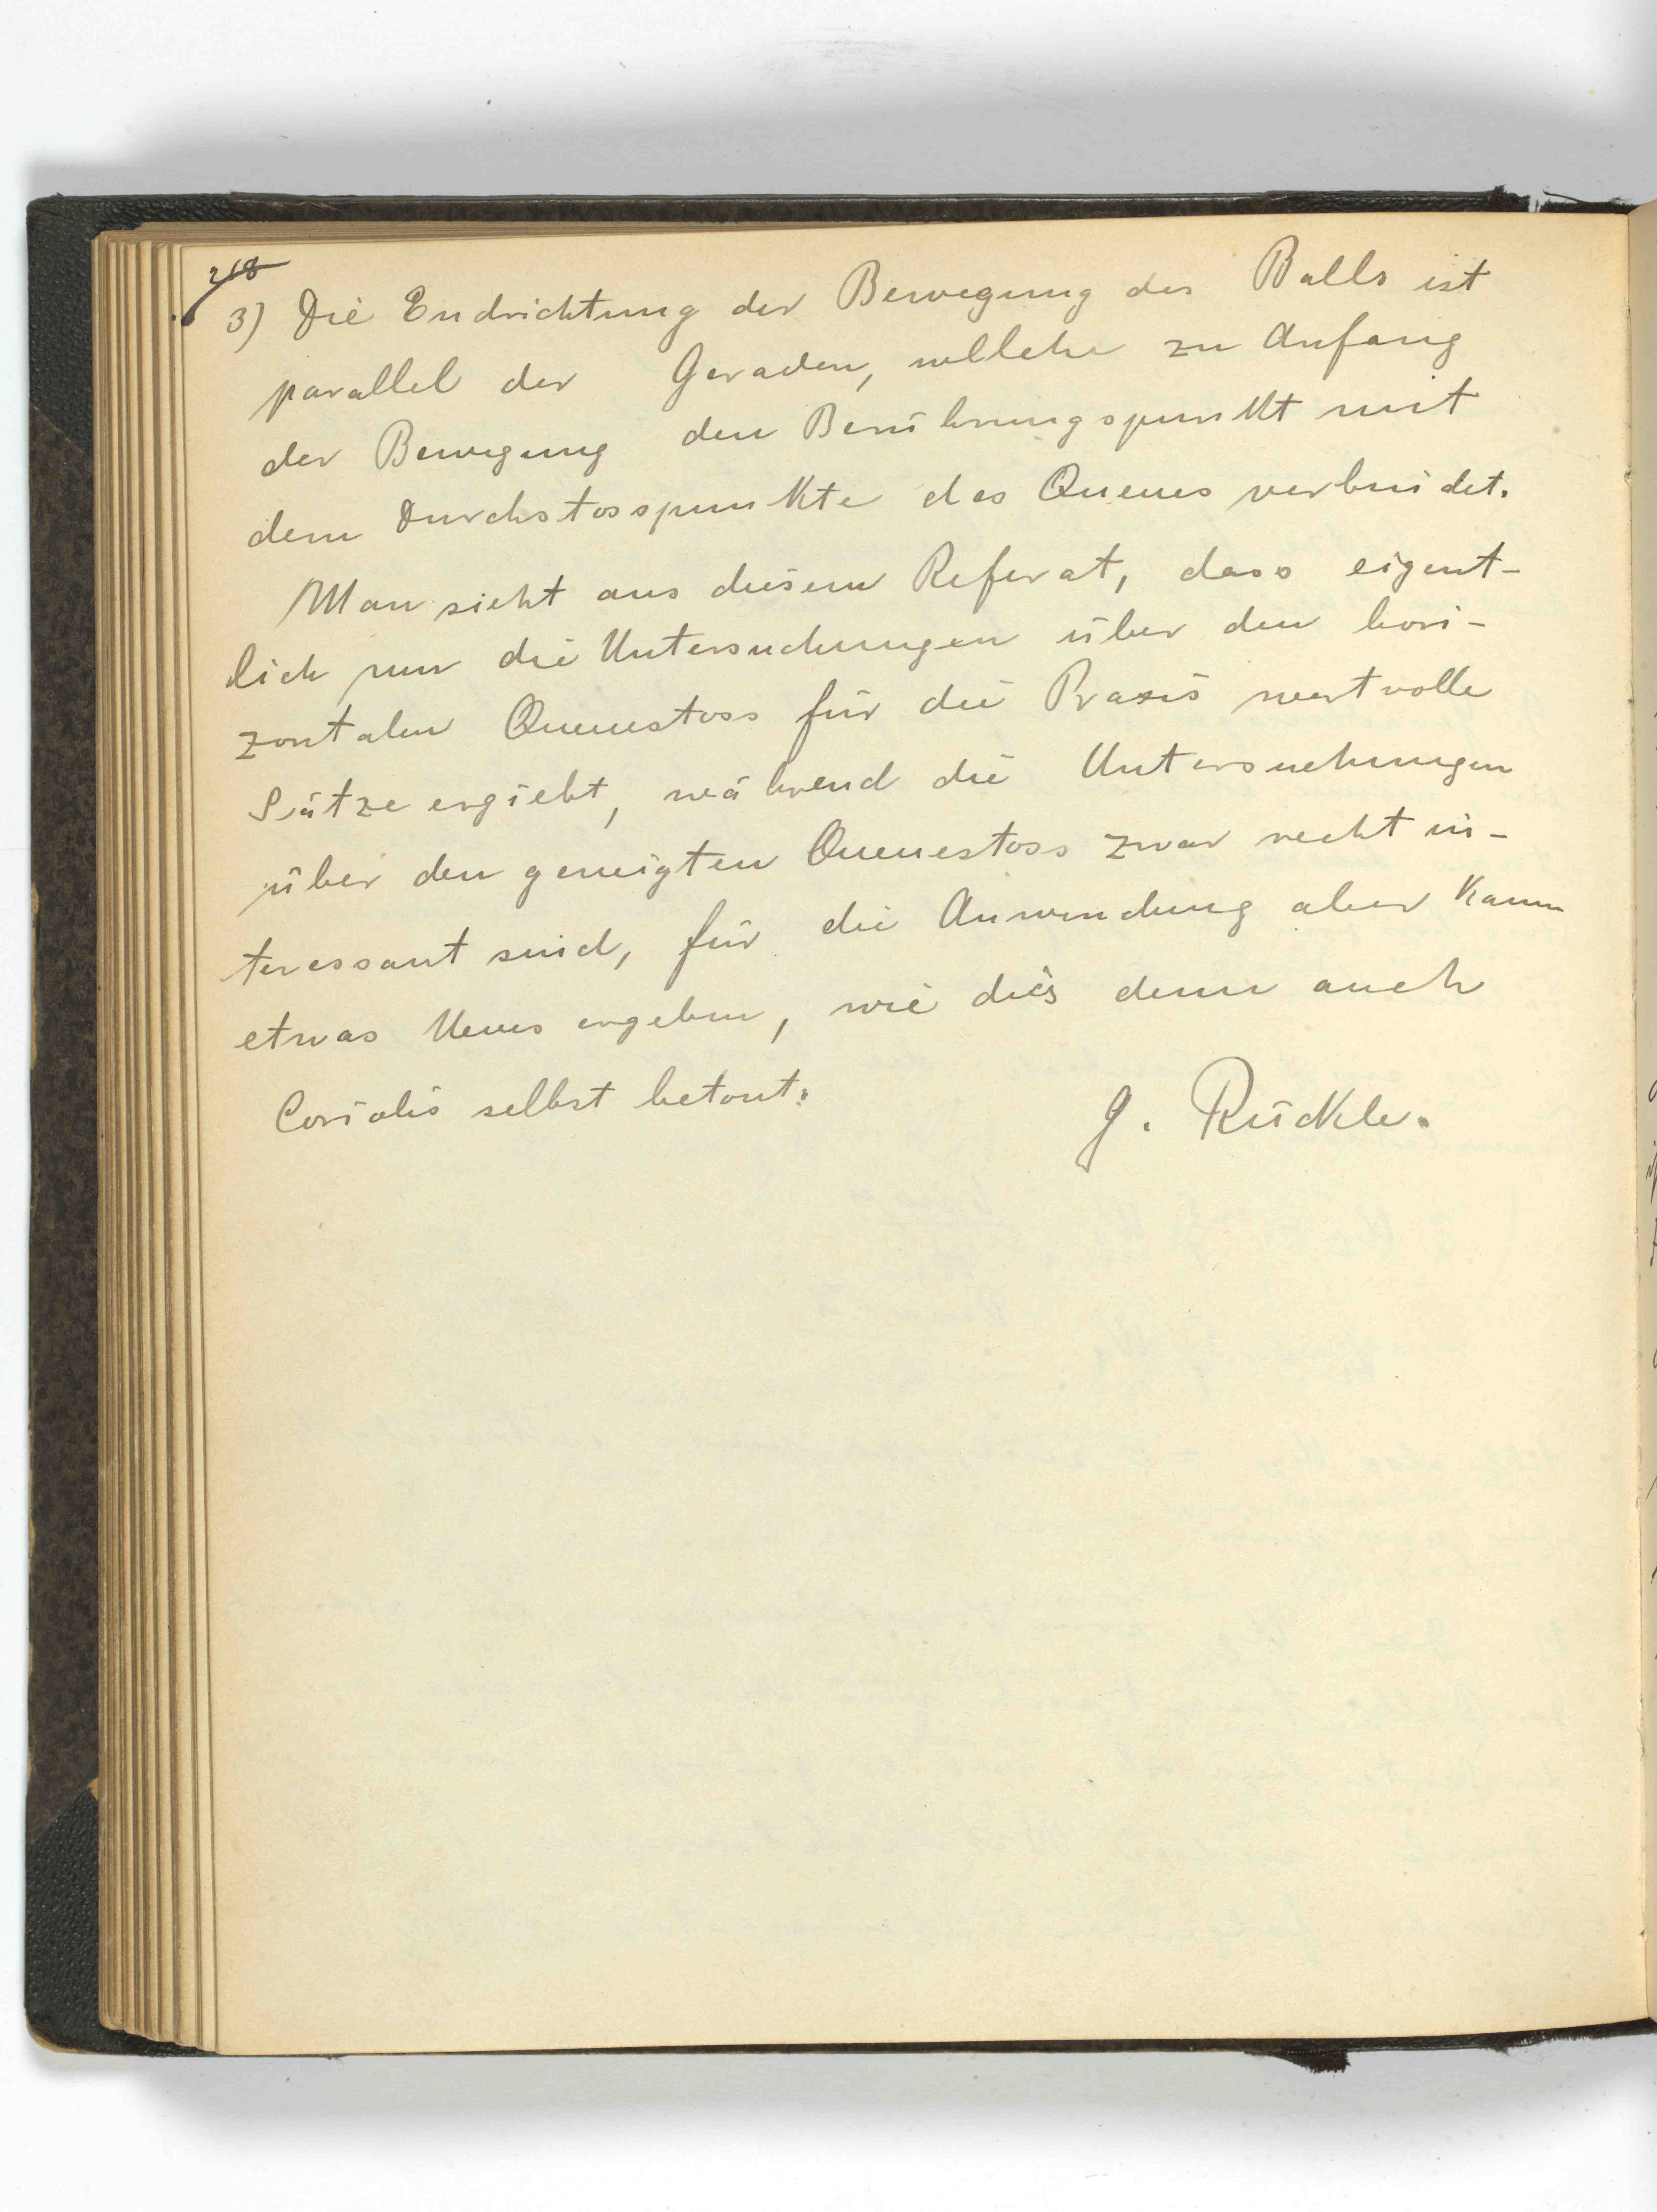 218
3) Die Endrichtung der Bewegung des Balls ist
parallel der Geraden, wellche zu Anfang
der Bewegung den Berührungspunkt mit
dem Durchstosspunkte des Queues verbindet.
Man sieht aus diesem Referat, dass eigent-
lich nur die Untersuchungen über den hori-
zontalen Queuestoss für die Praxis wertvolle
Sätze ergiebt, während die Untersuchungen
über den geneigten Queuestoss zwar recht in-
teressant sind, für die Anwendung aber kaum
etwas Neues ergeben, wie dies denn auch
Coriolis selbst betont.
G. Rückle.